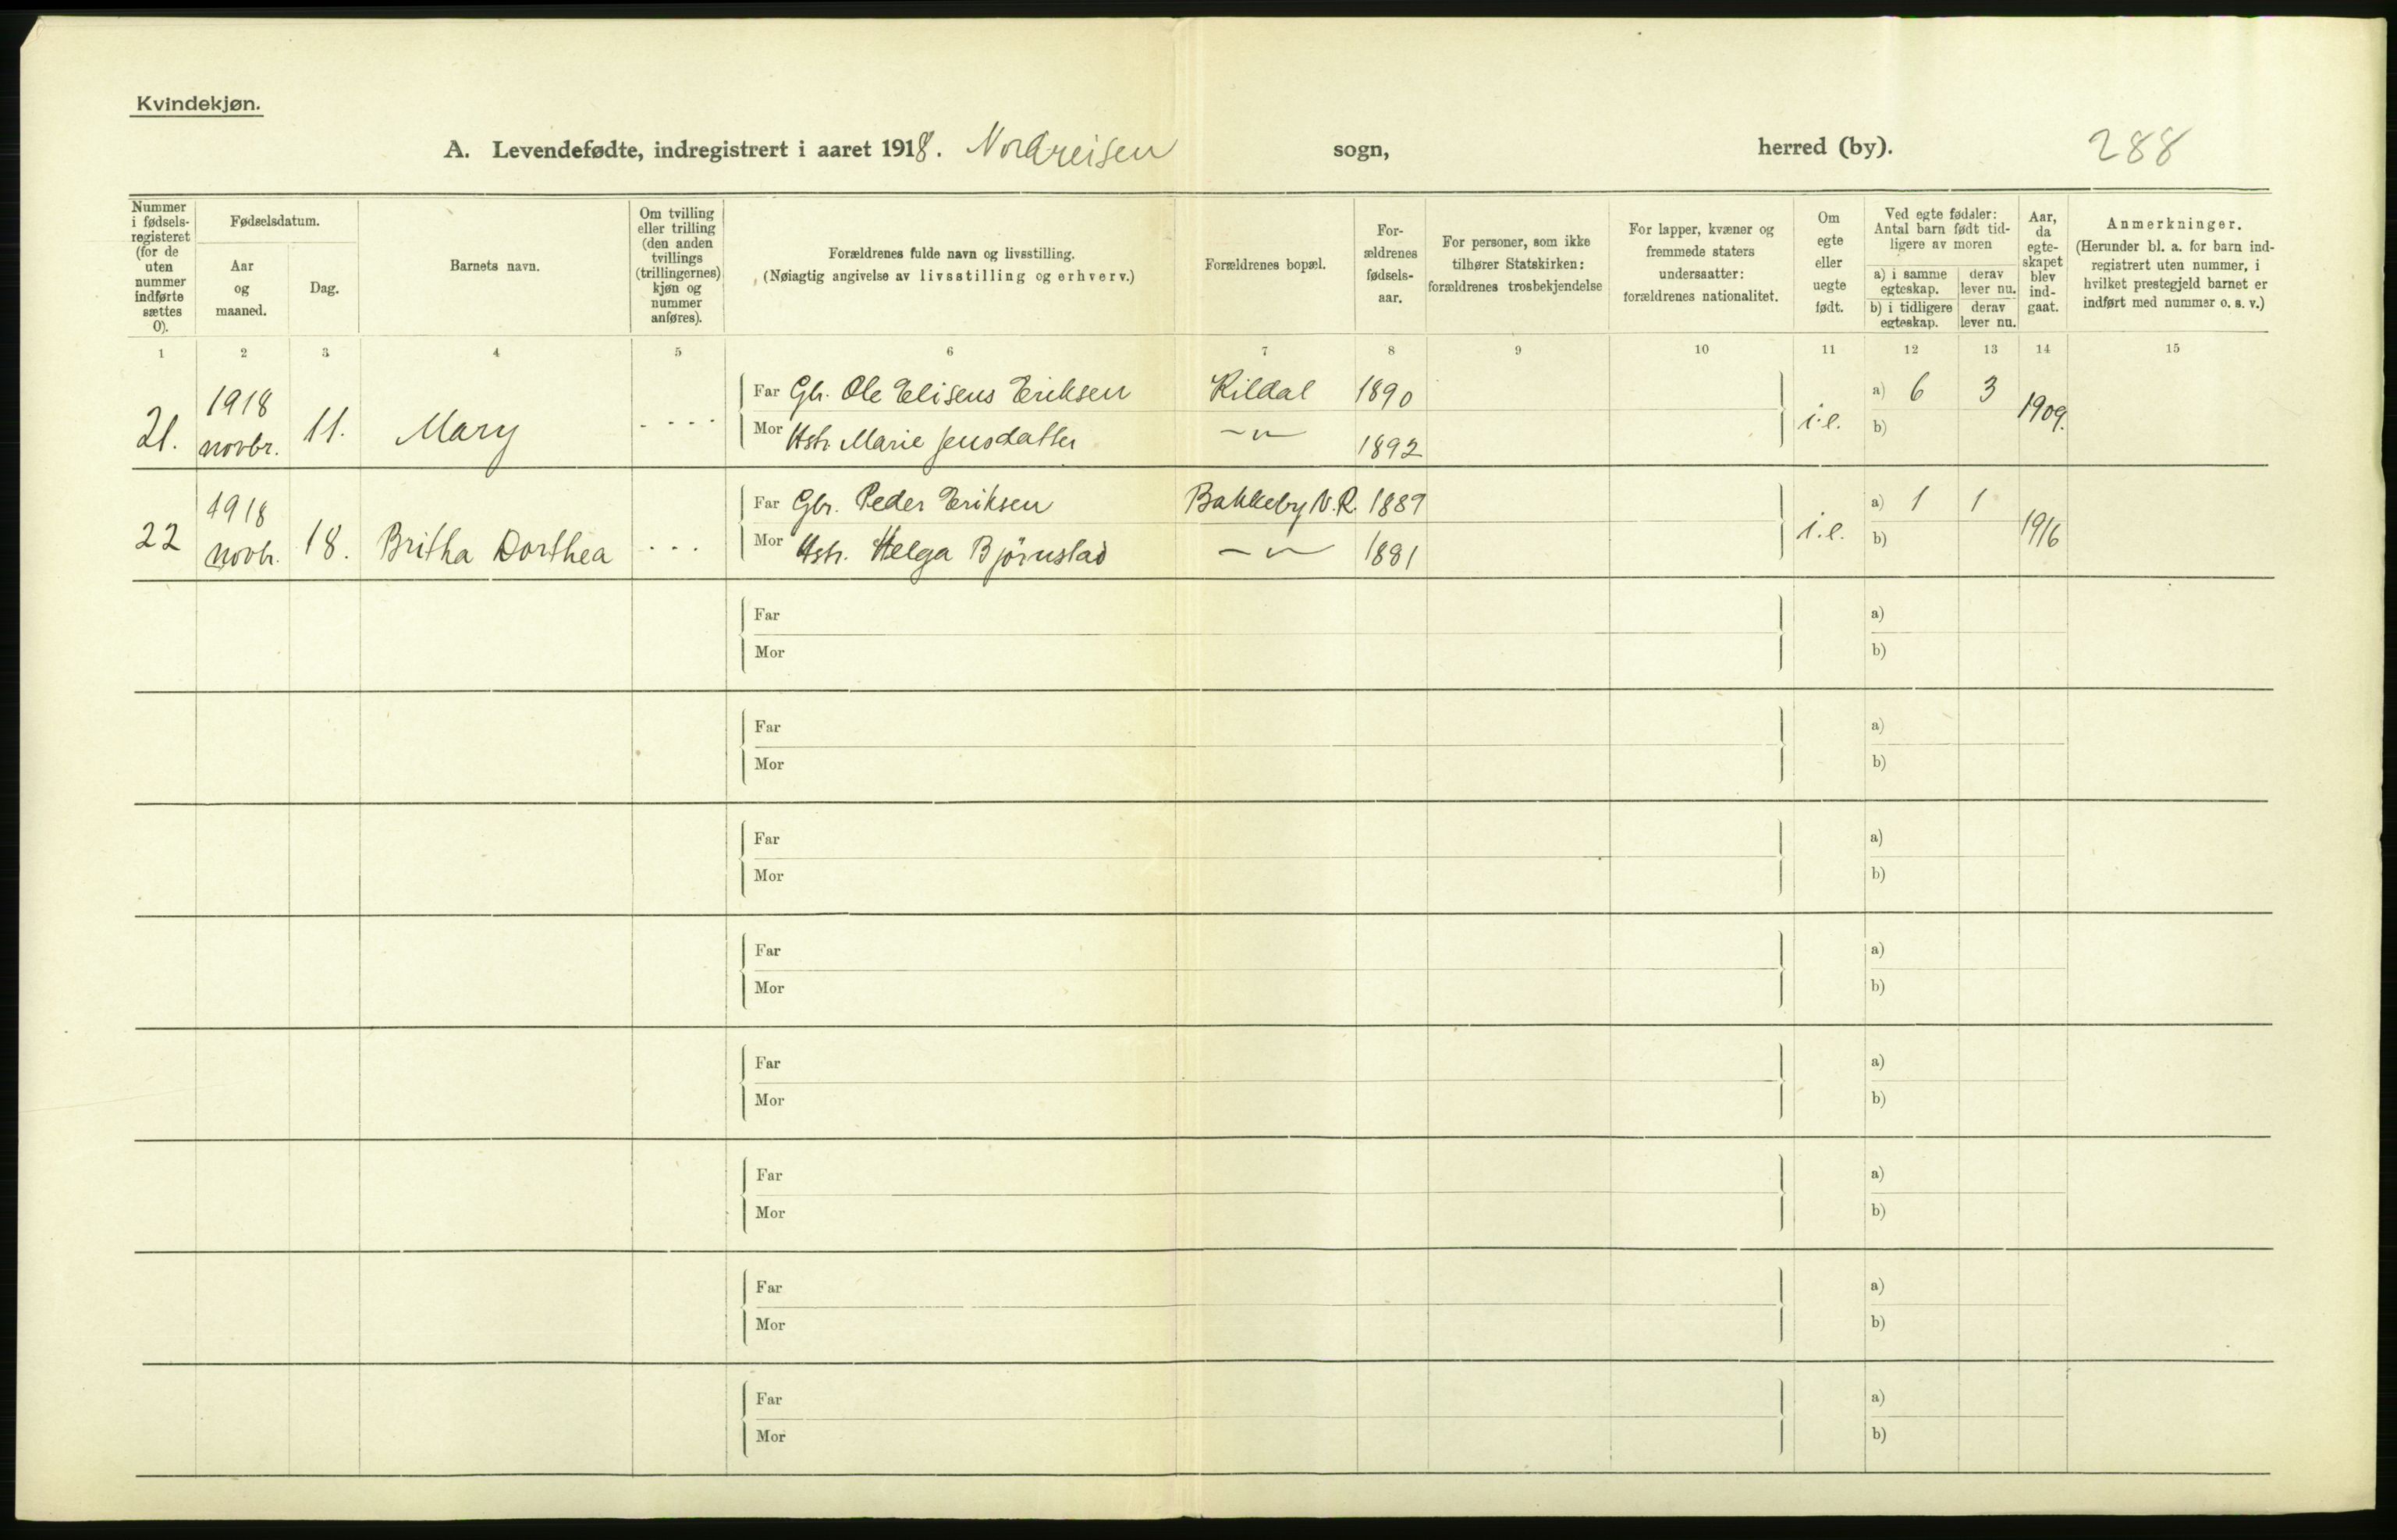 Kvindekjøn.
A. Levendefødte, indregistrert i aaret 1918. Nordreisen sogn, herred (by). 288
Nummer i fødsels-registeret (for de uten nummer indførte sættes 0).
Fødselsdatum.
Aar og maaned.
Dag.
Barnets navn.
Om tvilling eller trilling (den anden tvillings (trillingernes) kjøn og nummer anføres).
Forældrenes fulde navn og livsstilling.
(Nøiagtig angivelse av livsstilling og erhverv.)
Forældrenes bopæl.
For-ældrenes fødsels-aar.
For personer, som ikke tilhører Statskirken: forældrenes trosbekjendelse
For lapper, kvæner og fremmede staters undersaatter: forældrenes nationalitet.
Om egte eller uegte født.
Ved egte fødsler: Antal barn født tid-ligere av moren
a) i samme egteskap.
derav lever nu.
b) i tidligere egteskap.
derav lever nu.
Aar, da egte-skapet blev ind-gaat.
Anmerkninger.
(Herunder bl. a. for barn ind-registrert uten nummer, i hvilket prestegjeld barnet er indført med nummer o. s. v.)
1 2 3 4 5 6 7 8 9 10 11 12 13 14 15
21. 1918 novbr. 11. Mary - - - - Far Gbr. Ole Eliseus Eriksen Kildal 1890 i.e. a) 6 3 1909.
Mor Hstr. Marie Jensdatter -"- 1892 b)
22 1918 novbr. 18. Britha Dorthea - - - Far Gbr. Peder Eriksen Bakkeby N.R. 1889 i.e. a) 1 1 1916
Mor Hstr. Helga Bjørnstad -"- 1891 b)
Far a)
Mor b)
Far a)
Mor b)
Far a)
Mor b)
Far a)
Mor b)
Far a)
Mor b)
Far a)
Mor b)
Far a)
Mor b)
Far a)
Mor b)